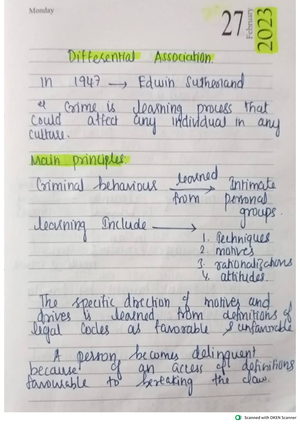 Monday
27
February
2023
Differential Association.
In 1947 → Edwin Sutherland
" Crime is learning process that
could affect any individual in any
culture.
Main principles
Criminal behaviour learned from → Intimate
personal
groups.
Learning Include →
1. Techniques
2. motives
3. rationalizations
4. attitudes.
The specific direction of motives and
drives is learned from definitions of
legal codes as favorable & unfavorable
A person becomes delinquent
because of an access of definitions
favourable to breaking the law.
Scanned with OKEN Scanner